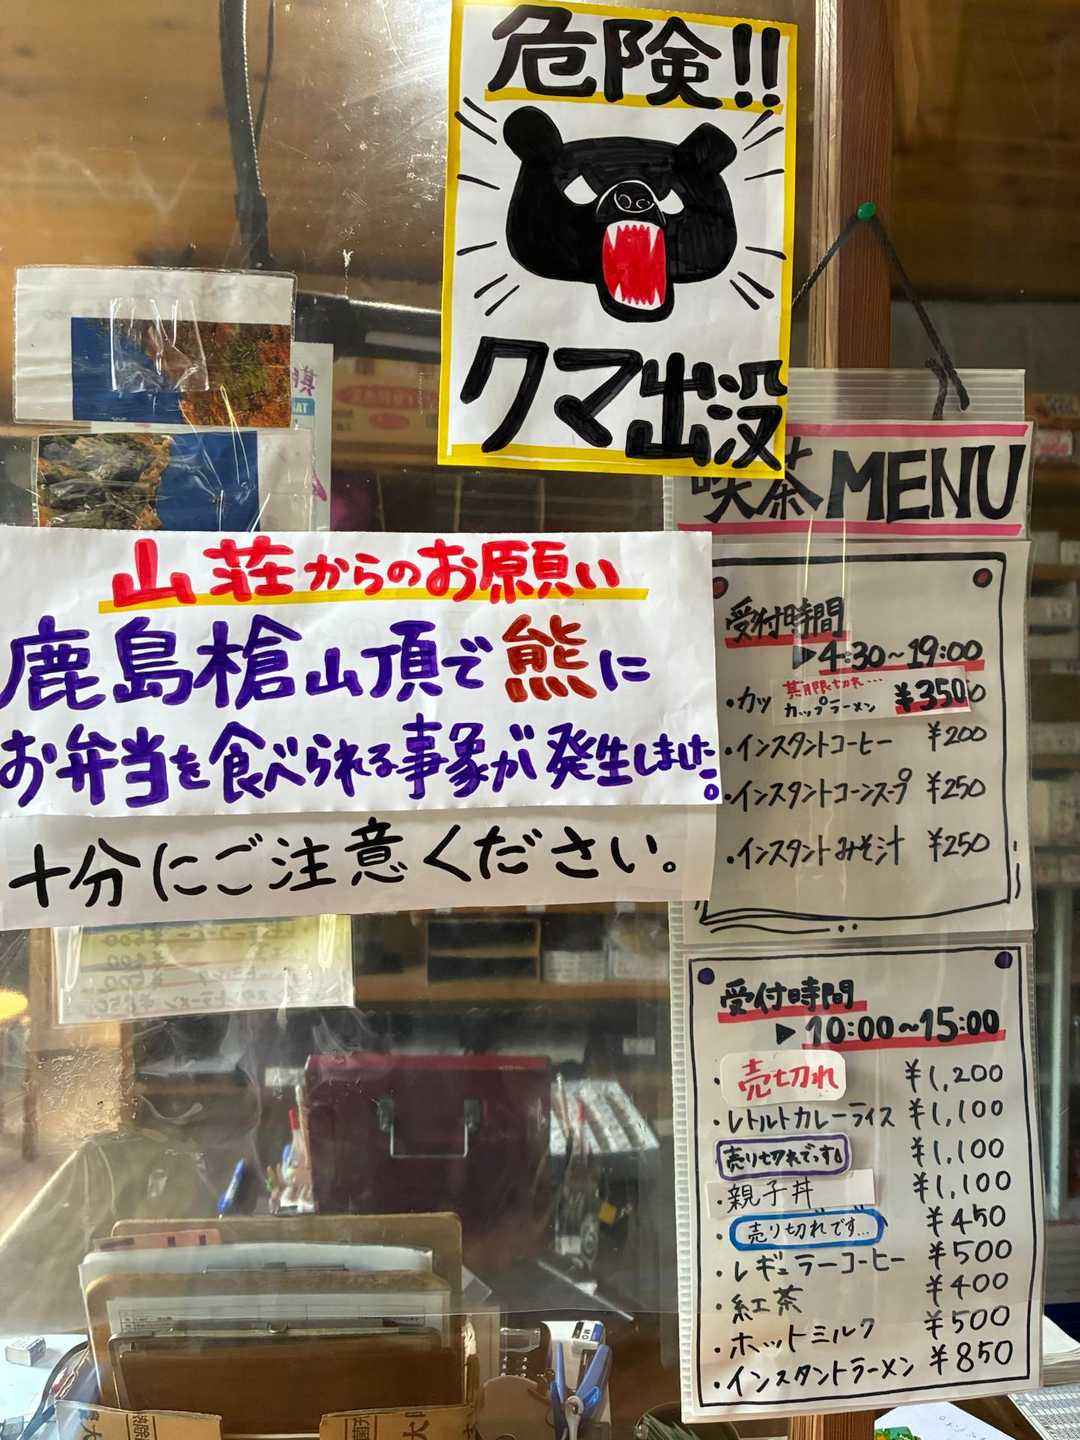 危険!!
クマ出没
喫茶MENU
山荘からのお願い
鹿島槍山頂で熊に
お弁当を食べられる事象が発生しました。
十分にご注意ください。
受付時間
▶4:30~19:00
・カッ 期限切れ… カップラーメン ¥350
・インスタントコーヒー ¥200
・インスタントコーンスープ ¥250
・インスタントみそ汁 ¥250
受付時間
▶10:00~15:00
・売切れ ¥1,200
・レトルトカレーライス ¥1,100
売り切れです。 ¥1,100
・親子丼 ¥1,100
・売り切れです… ¥450
・レギュラーコーヒー ¥500
・紅茶 ¥400
・ホットミルク ¥500
・インスタントラーメン ¥850